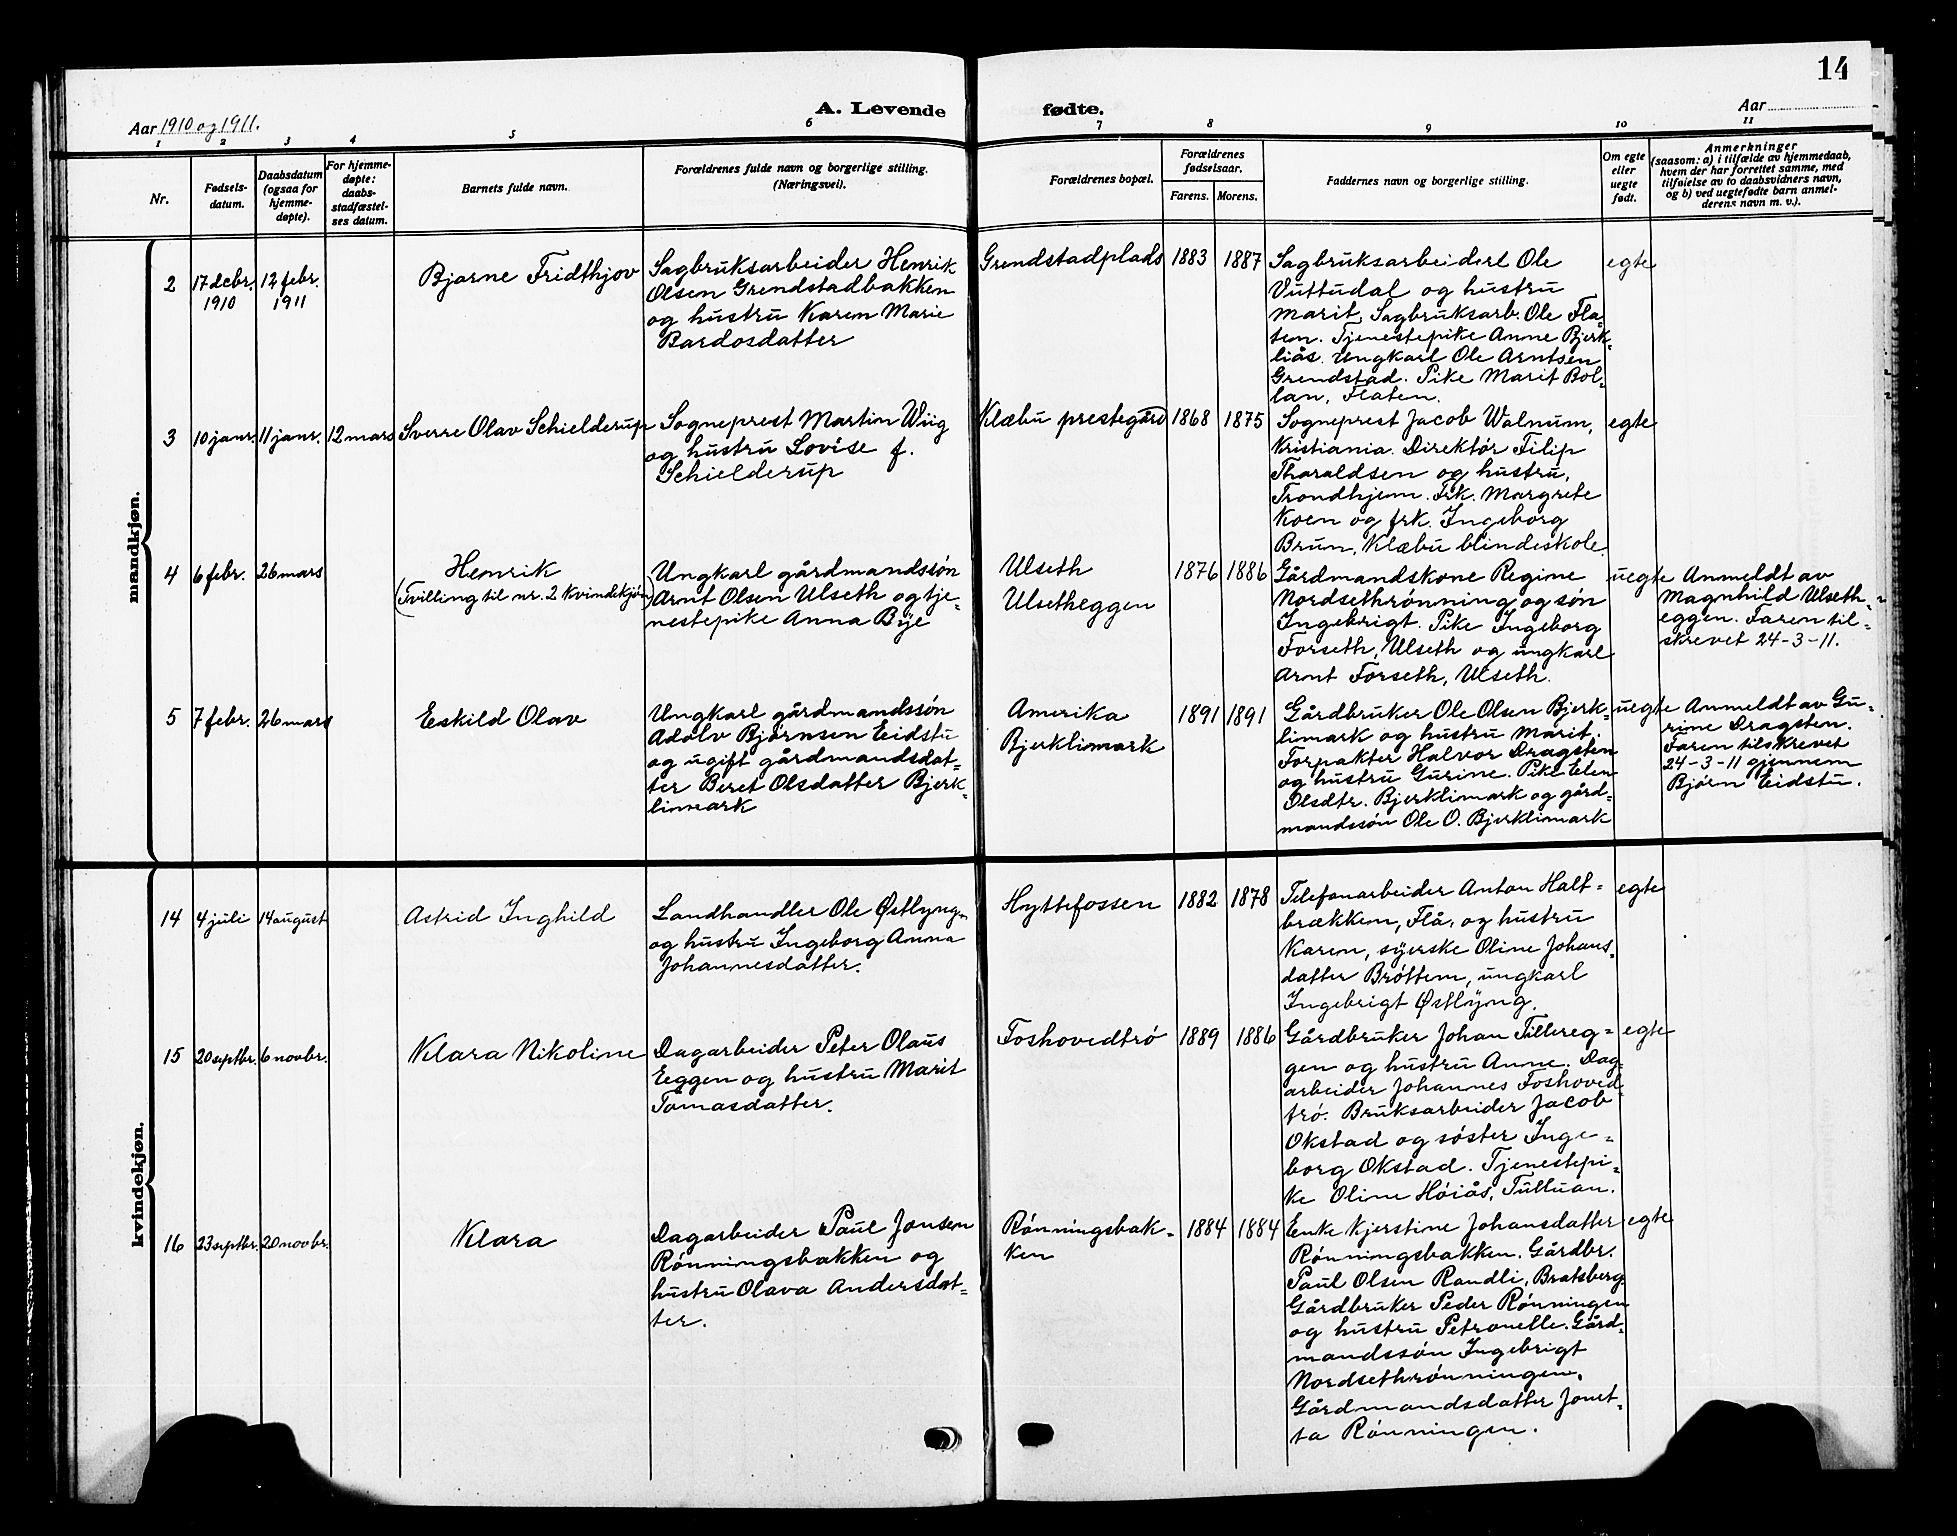 14
A. Levende fødte.
Aar 1910 og 1911.
Aar
1 2 3 4 5 6 7 8 9 10 11
Nr.
Fødsels-
datum.
Daabsdatum
(ogsaa for
hjemme-
døpte).
For hjemme-
døpte:
daabs-
stadfæstel-
ses datum.
Barnets fulde navn.
Forældrenes fulde navn og borgerlige stilling.
(Næringsvei).
Forældrenes bopæl.
Forældrenes
fødselsaar.
Farens. Morens.
Faddernes navn og borgerlige stilling.
Om egte
eller
uegte
født.
Anmerkninger
(saasom: a) i tilfælde av hjemmedaab,
hvem der har forrettet samme, med
tilføielse av to daabsvidners navn,
og b) ved uegtefødte barn anmel-
derens navn m. v.).
mandkjøn.
2
17 decbr.
1910
12 febr.
1911
Bjarne Fridthjov
Sagbruksarbeider Henrik
Olsen Grendstadbakken
og hustru Karen Marie
Bardosdatter
Grendstadplads
1883
1887
Sagbruksarbeider Ole
Vuttudal og hustru
Marit, Sagbruksarb. Ole Fla-
ten. Tjenestepike Anne Bjerk-
liås. Ungkarl Ole Arntsen
Grendstad. Pike Marit Bol-
lan, Flaten.
egte
3
10 janr.
11 janr.
12 mars
Sverre Olav Schielderup
Sogneprest Martin Wiig
og hustru Lovise f.
Schielderup
Klæbu prestegård
1868
1875
Sogneprest Jacob Walnum,
Kristiania. Direktór Filip
Tharaldsen og hustru,
Trondhjem. Frk. Margrete
Koen og frk. Ingeborg
Brun, Klæbu blindeskole.
egte
4
6 febr.
26 mars
Henrik
(Tvilling til nr. 2 kvindekjøn)
Ungkarl gårdmandssón
Arnt Olsen Ulseth og tje-
nestepike Anna Bye
Ulseth
Ulsetheggen
1876
1886
Gårdmandskone Regine
Nordsethrónning og són
Ingebrigt. Pike Ingeborg
Forseth, Ulseth og ungkarl
Arnt Forseth, Ulseth.
uegte
Anmeldt av
Magnhild Ulseth-
eggen. Faren til-
skrevet 24-3-11.
5
7 febr.
26 mars
Eskild Olav
Ungkarl gårdmandssón
Adolv Bjórnsen Eidstu
og ugift gårdmandsdat-
ter Beret Olsdatter Bjerk-
limark
Amerika
Bjerklimark
1891
1891
Gårdbruker Ole Olsen Bjerk-
limark og hustru Marit.
Forpakter Halvor Dragsten
og hustru Gurine. Pike Elen
Olsdtr. Bjerklimark og gård-
mandssón Ole O. Bjerklimark
uegte
Anmeldt av Gu-
rine Dragsten.
Faren tilskrevet
24-3-11 gjennem
Bjórn Eidstu.
kvindekjøn.
14
4 juli
14 august
Astrid Inghild
Landhandler Ole Østlyng
og hustru Ingeborg Anna
Johannesdatter.
Hyttefossen
1882
1878
Telefonarbeider Anton Halt-
brækken, Flå, og hustru
Karen, syerske Oline Johans-
datter Bróttem, ungkarl
Ingebrigt Østlyng.
egte
15
20 septbr.
6 novbr.
Klara Nikoline
Dagarbeider Peter Olaus
Eggen og hustru Marit
Tomasdatter.
Foshovedtró
1889
1886
Gårdbruker Johan Tillereg-
gen og hustru Anne. Dag-
arbeider Johannes Foshoved-
tró. Bruksarbeider Jacob
Okstad og sóster Inge-
borg Okstad. Tjenestepi-
ke Oline Hóiås, Tulluan.
egte
16
23 septbr.
20 novbr.
Klara
Dagarbeider Paul Jonsen
Rónningsbakken og
hustru Olava Andersdat-
ter.
Rónningsbak-
ken
1884
1884
Enke Kjerstine Johansdatter
Rónningsbakken. Gårdbr.
Paul Olsen Randli, Bratsberg.
Gårdbruker Peder Rónningen
og hustru Petronelle. Gård-
mandssón Ingebrigt
Nordsethrónningen.
Gårdmandsdatter Jonet-
ta Rónningen.
egte